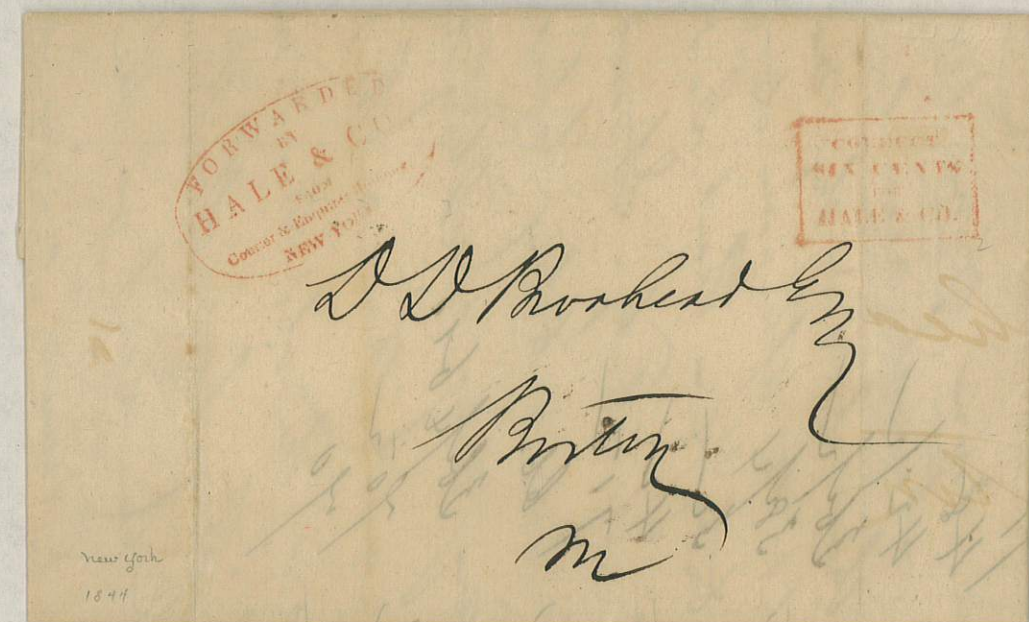 FORWARDED
BY
HALE & CO
FROM
Courier & Enquirer
NEW YORK
COLLECT
SIX CENTS
FOR
HALE & CO.
D D Brodhead Esq
Boston
M
New York
1844